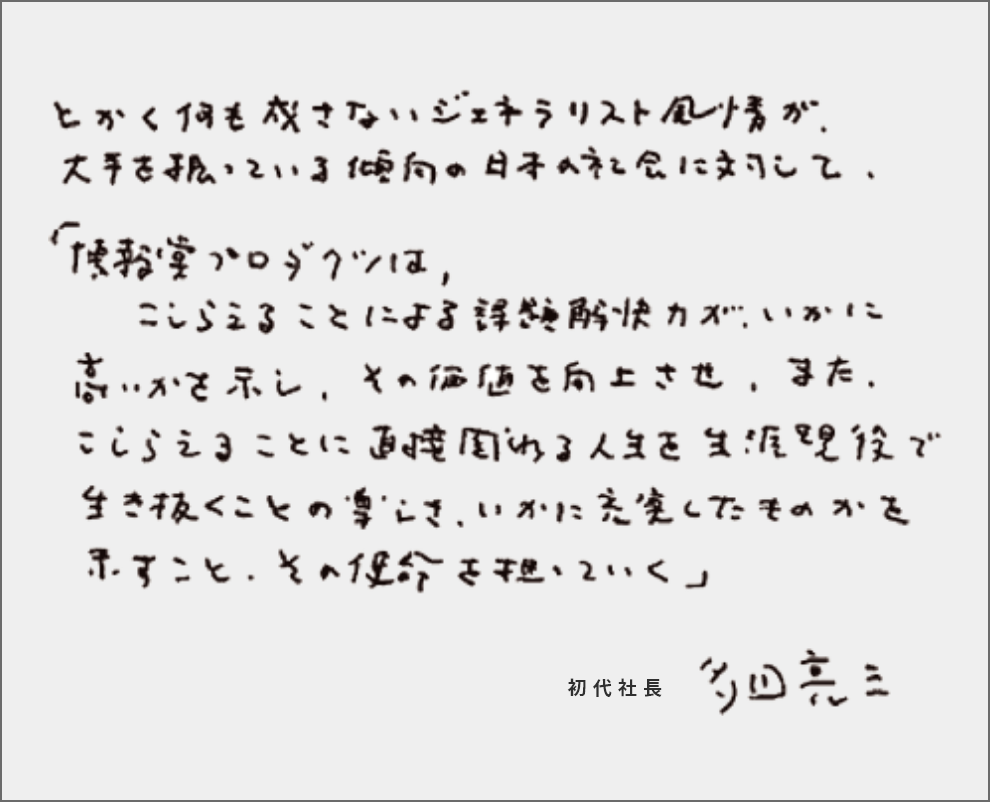 とかく何も成さないジェネラリスト風情が、
大手を振っている傾向の日本の社会に対して、
「博報堂プロダクツは、
こしらえることによる課題解決力が、いかに
高いかを示し、その価値を向上させ、また、
こしらえることに直接関われる人生を生涯現役で
生き抜くことの楽しさ、いかに充実したものかを
示すこと、その使命を担っていく」
初代社長 多田亮三